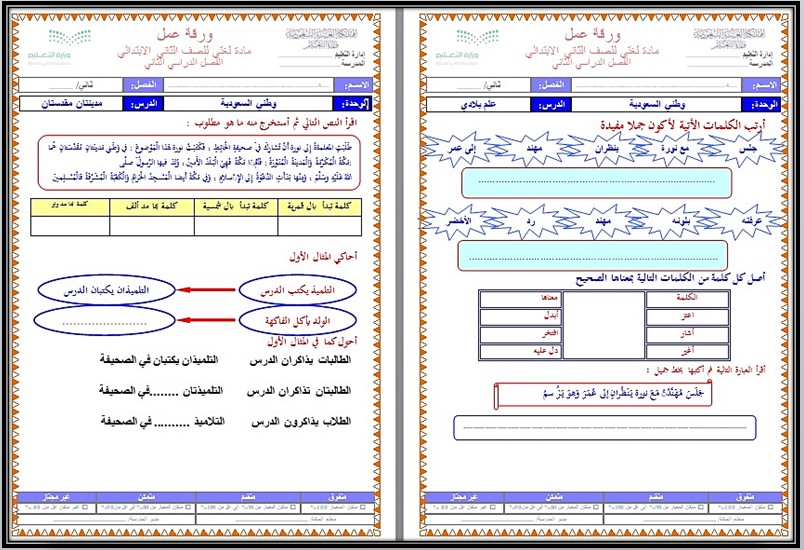 ورقة عمل
مادة لغتي للصف الثاني الابتدائي
الفصل الدراسي الثاني
إدارة التعليم
المدرسة
وزارة التعليم
الاسم:
الفصل: ثاني/
الوحدة: وطني السعودية الدرس: علم بلادي
أرتب الكلمات الآتية لأكون جملا مفيدة
جلس مع نورة ينظران مهند إلى عمر
عرفته بلونه مهند رد الأخضر
أصل كل كلمة من الكلمات التالية بمعناها الصحيح
الكلمة معناها
اعتز أبدل
أشار افتخر
أغير دل عليه
أقرأ العبارة التالية ثم أكتبها بخط جميل :
جَلَسَ مُهَنَّدٌ مَعَ نورة يَنْظُرانِ إلى عُمَرَ وَهوَ يَرْسمُ
متفوق متقدم متمكن غير مجتاز
ورقة عمل
مادة لغتي للصف الثاني الابتدائي
الفصل الدراسي الثاني
إدارة التعليم
المدرسة
وزارة التعليم
الاسم:
الفصل: ثاني/
الوحدة: وطني السعودية الدرس: مدينتان مقدستان
اقرأ النص التالي ثم أستخرج منه ما هو مطلوب :
طَلَبَتْ المعلمةُ إلى نورة أنْ تُشاركَ في صحيفةِ الحائطِ ، فكَتَبَتْ نورة هَذا الموضوعَ : في وَطَني مَدينَتانِ مُقَدَّسَتانِ هُما
مَكّةُ المُكَرَّمَةُ والمَدينةُ المُنَوَّرَةُ : فَأمّا مَكّةُ فَهِيَ البَلَدُ الأمينُ ، وُلِدَ فيها الرسولُ صلى
الله عليه وسلم ، ومنها بَدَأتِ الدَّعْوَةُ إلى الإسلامِ ، وفي مَكّةَ أيضا المَسْجِدُ الحَرامُ والكَعْبَةُ المُشَرَّفَةُ فالمسلمين
كلمة تبدأ بال قمرية كلمة تبدأ بال شمسية كلمة بها مد ألف كلمة بها مد واو
أحاكي المثال الأول
التلميذ يكتب الدرس التلميذان يكتبان الدرس
الولد يأكل الفاكهة ....................
أحول كما في المثال الأول
الطالبات يذاكران الدرس التلميذان يكتبان في الصحيفة
الطالبتان تذاكران الدرس التلميذتان ........في الصحيفة
الطلاب يذاكرون الدرس التلاميذ .......... في الصحيفة
متفوق متقدم متمكن غير مجتاز